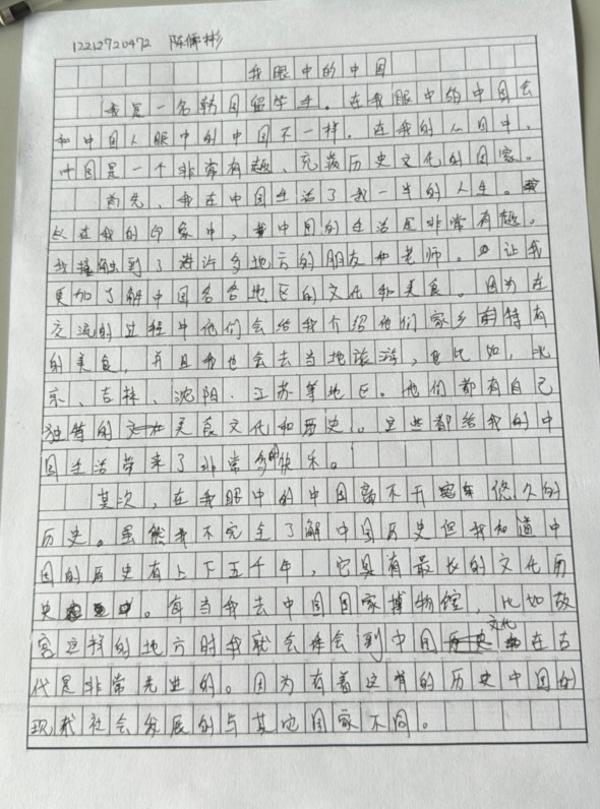 12212720472 陈佩彬
我眼中的中国
我是一名韩国留学生。在我眼中的中国会
和中国人眼中的中国不一样。在我的人目中,
中国是一个非常有趣、充满历史文化的国家。
首先,我在中国生活了我一半的人生。
在我的印象中,中国的生活是非常有趣。
我接触到了许多地方的朋友和老师。让我
更加了解中国各各地区的文化和美食。因为在
交流的过程中他们会给我介绍他们家乡特有
的美食,并且我也会去当地旅游,比如,北
京、吉林、沈阳、江苏等地区。他们都有自己
独特的美食文化和历史。这些都给我的中
国生活带来了非常多的快乐。
其次,在我眼中的中国离不开悠久的
历史。虽然我不完全了解中国历史但我知道中
国的历史有上下五千年,它具有最长的文化历
史。每当我去中国国家博物馆,比如故
宫这样的地方时我就会体会到中国文化在古
代是非常先进的。因为有着这样的历史中国的
现代社会发展的与其他国家不同。